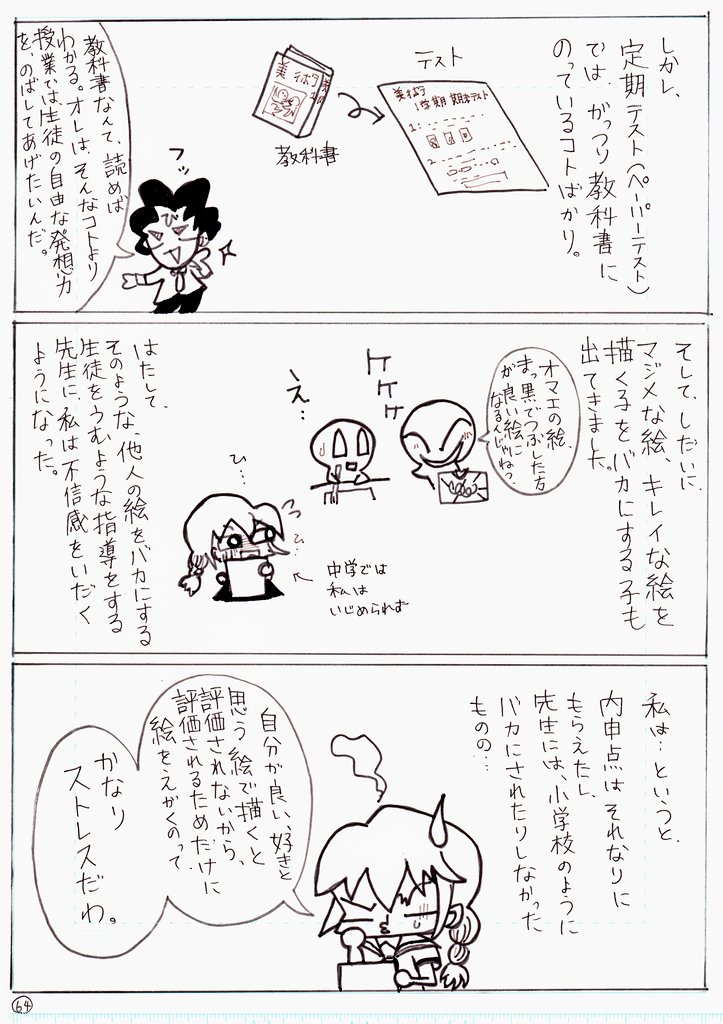 しかし、
定期テスト(ペーパーテスト)
では、がっつり教科書に
のっているコトばかり。
テスト
美術
1学期 期末テスト
1.
2.
美術
教科書
フッ
教科書なんて、読めば
わかる。オレは、そんなコトより
授業では生徒の自由な発想力
を、のばしてあげたいんだ。
そして、しだいに
マジメな絵、キレイな絵を
描く子をバカにする子も
出てきました。
オマエの絵、
まっ黒でつぶした方
が良い絵に
なるんじゃね?
ケケケ
え…
ひ…
ひ…
中学では
私は
いじめられず
はたして、
そのような、他人の絵をバカにする
生徒をうむような指導をする
先生に、私は不信感をいだく
ようになった。
私は…というと、
内申点はそれなりに
もらえたし、
先生には、小学校のように
バカにされたりしなかった
ものの…
自分が良い、好きと
思う絵で描くと
評価されないから、
評価されるためだけに
絵をえがくのって、
かなり
ストレスだわ。
64